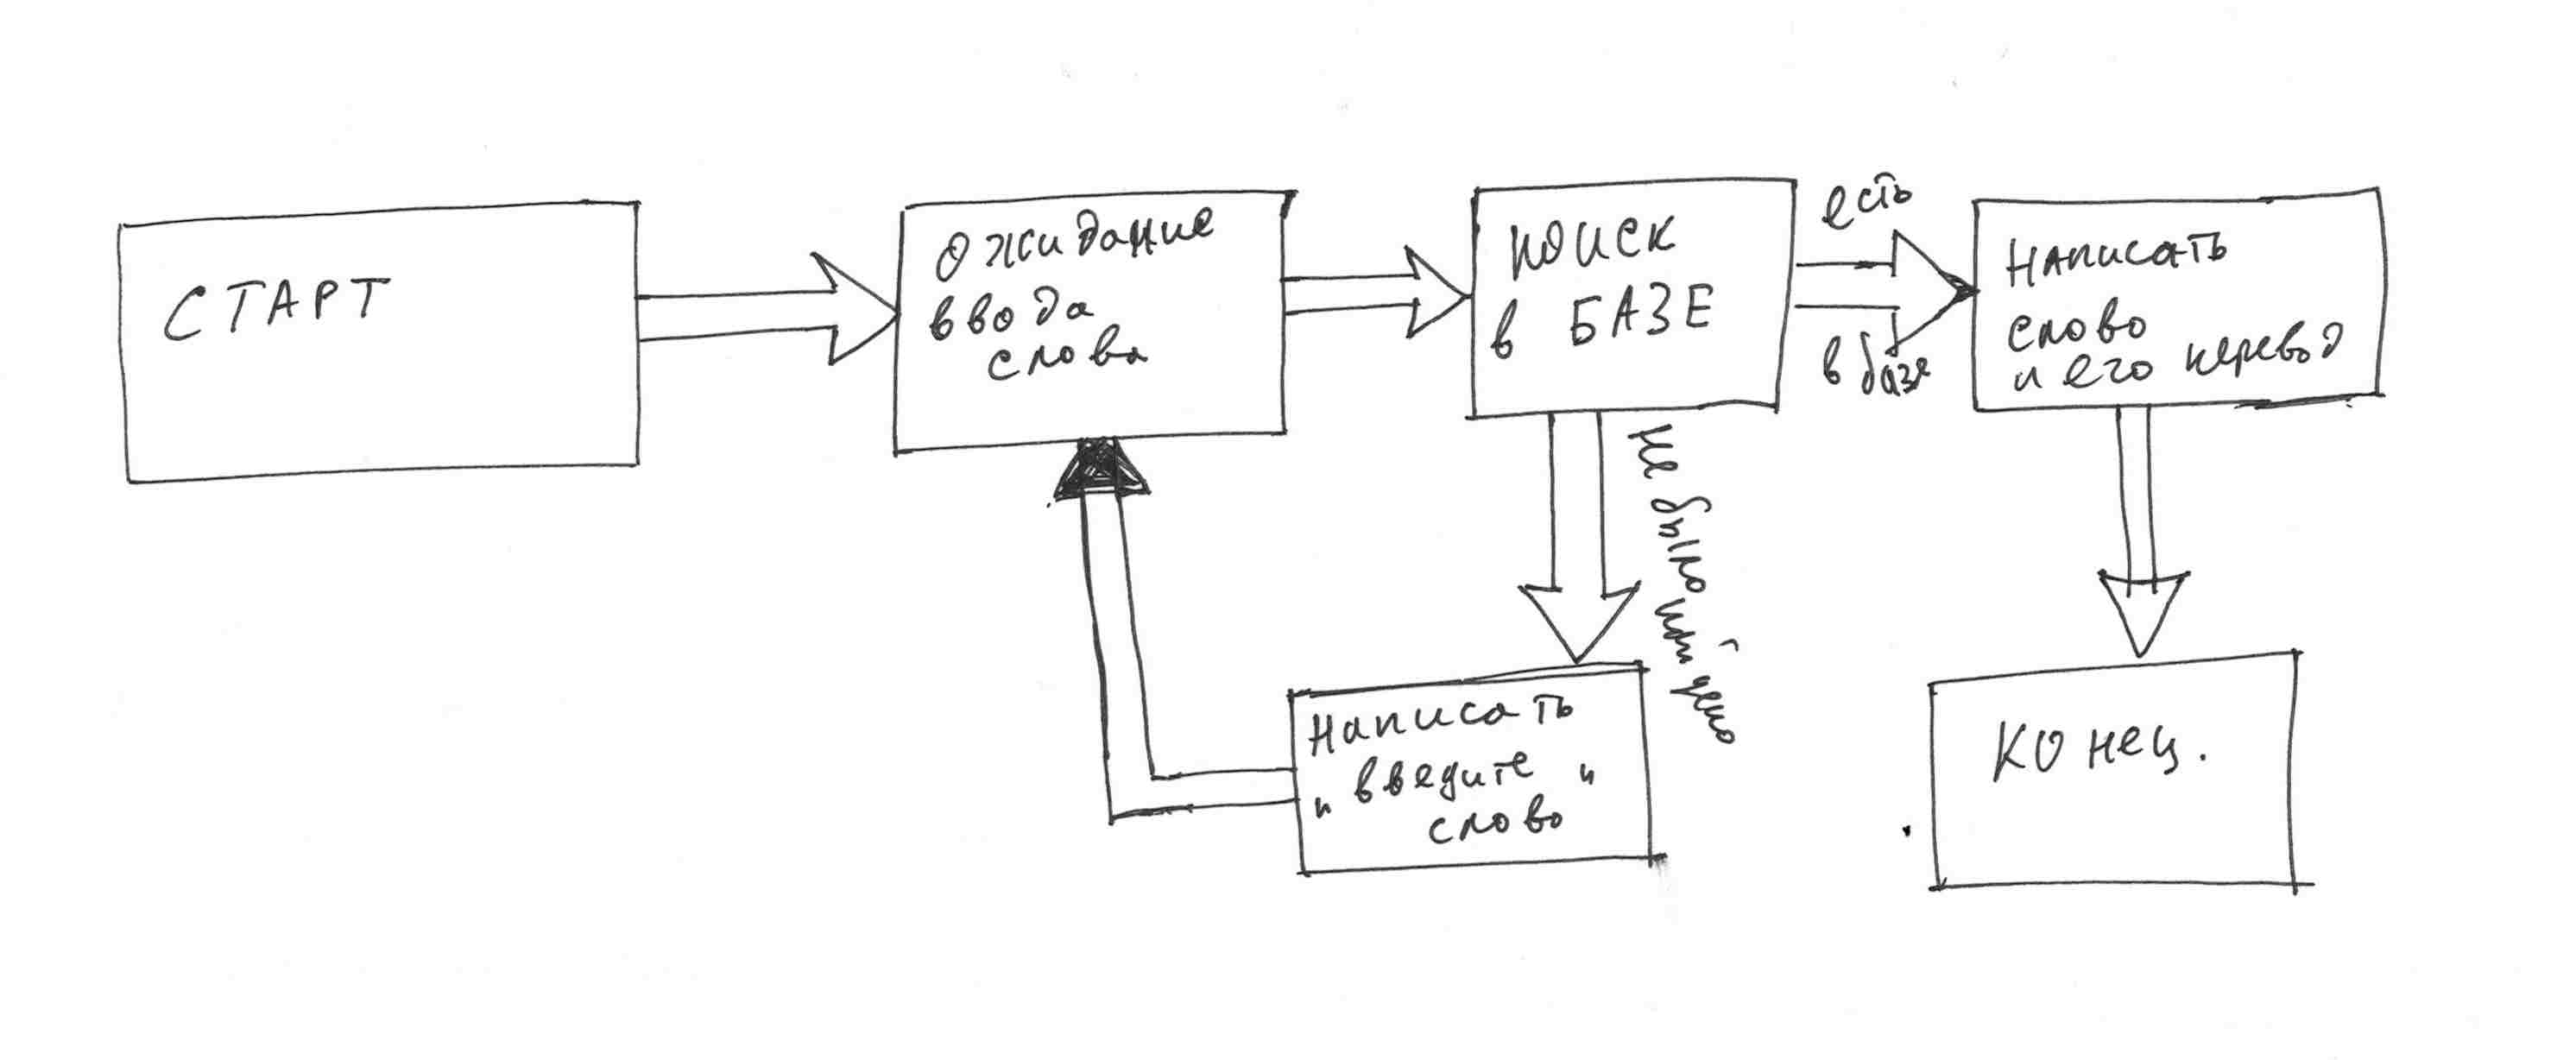 СТАРТ
Ожидание
ввода
слова
поиск
в БАЗЕ
есть
в базе
Написать
слово
и его перевод
не было найдено
Написать
„ введите "
слово
конец.